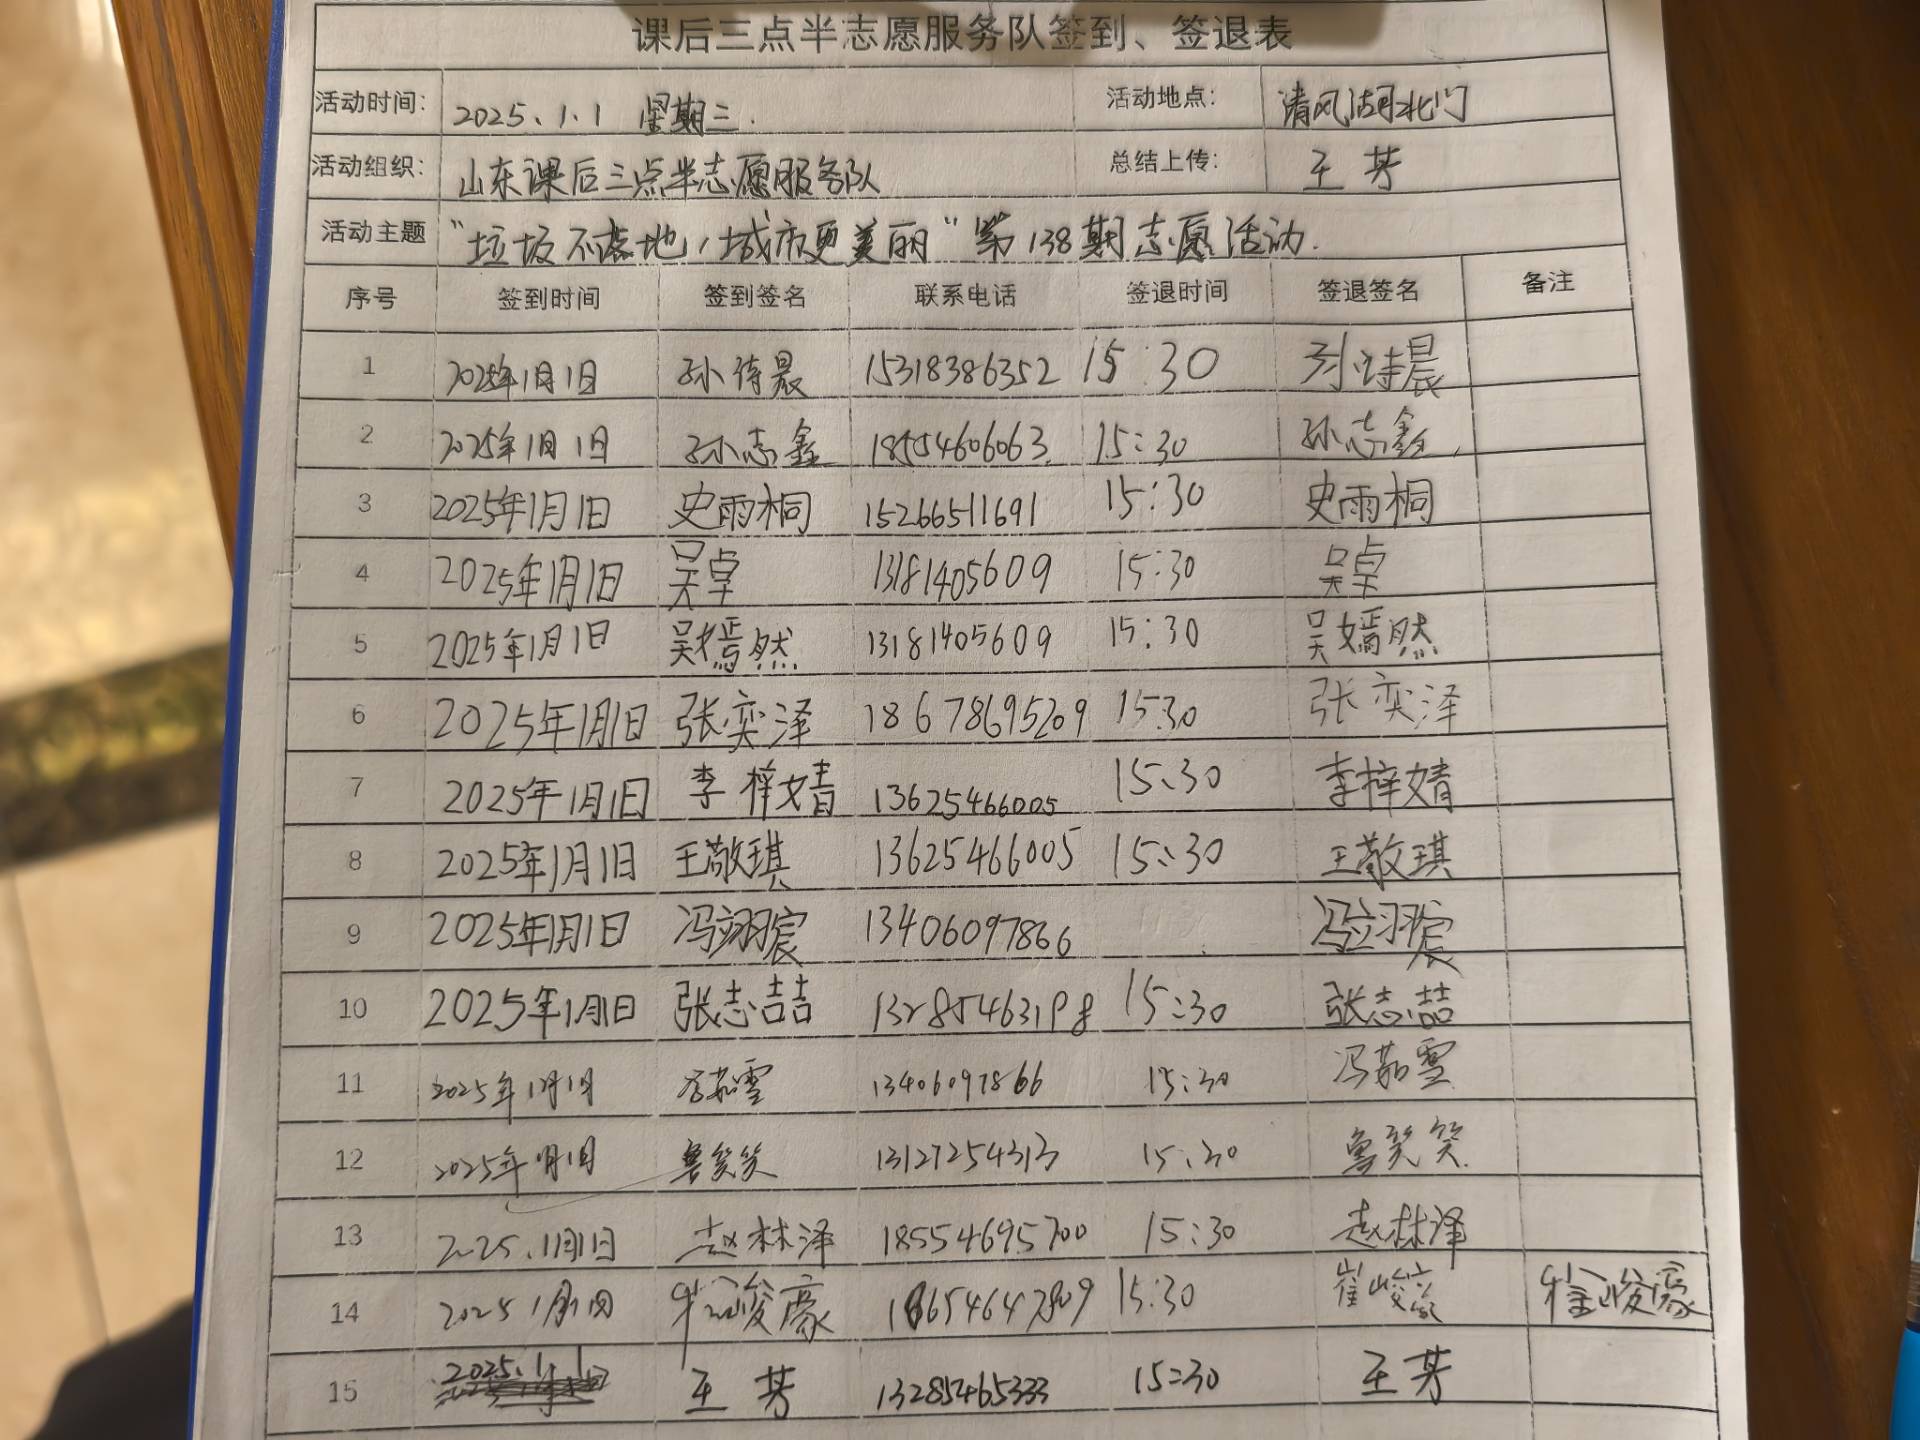 课后三点半志愿服务队签到、签退表
活动时间： 2025.1.1 星期三. 活动地点： 清风湖北门
活动组织： 山东课后三点半志愿服务队 总结上传： 王芳
活动主题 "垃圾不落地，城市更美丽"第138期志愿活动.
序号 签到时间 签到签名 联系电话 签退时间 签退签名 备注
1 2025年1月1日 孙诗晨 15318386352 15:30 孙诗晨
2 2025年1月1日 孙志鑫 18554606063 15:30 孙志鑫
3 2025年1月1日 史雨桐 15266511691 15:30 史雨桐
4 2025年1月1日 吴卓 13181405609 15:30 吴卓
5 2025年1月1日 吴嫣然 13181405609 15:30 吴嫣然
6 2025年1月1日 张奕泽 18678695209 15:30 张奕泽
7 2025年1月1日 李梓婧 13625466005 15:30 李梓婧
8 2025年1月1日 王敬琪 13625466005 15:30 王敬琪
9 2025年1月1日 冯翊宸 13406097866 冯翊宸
10 2025年1月1日 张志喆 13285463198 15:30 张志喆
11 2025年1月1日 冯茹雪 13406097866 15:30 冯茹雪
12 2025年1月1日 鲁笑笑 13127254313 15:30 鲁笑笑
13 2025.1月1日 赵林泽 18554695700 15:30 赵林泽
14 2025 1月1日 峻豪 18654647809 15:30 崔峻豪 峻豪
15 2025.1.1 王芳 13285465333 15:30 王芳